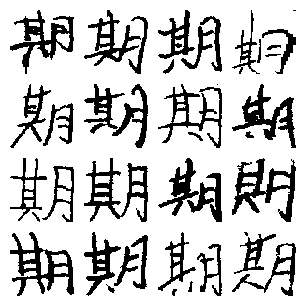 期期期期
期期期期
期期期期
期期期期